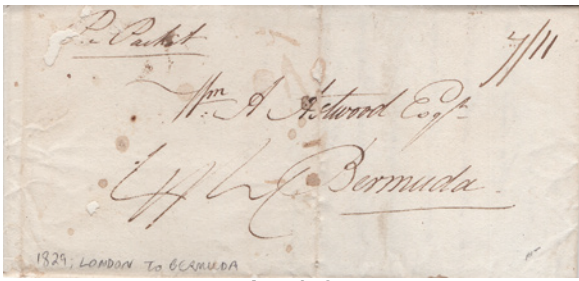 Pr Packet
7/11
Wm A Astwood Esqr
Bermuda
1829, LONDON TO BERMUDA